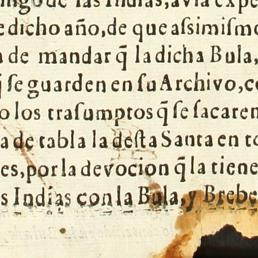 ingo de las Indias, avia expe
e dicho año, de que assimismo
a de mandar q̃ la dicha Bula,
q̃ se guarden en su Archivo, co
o los trasumptos q̃ se sacaren
a de tabla la desta Santa en to
es, por la devocion q̃ la tiene
s Indias con la Bula, y Brebe